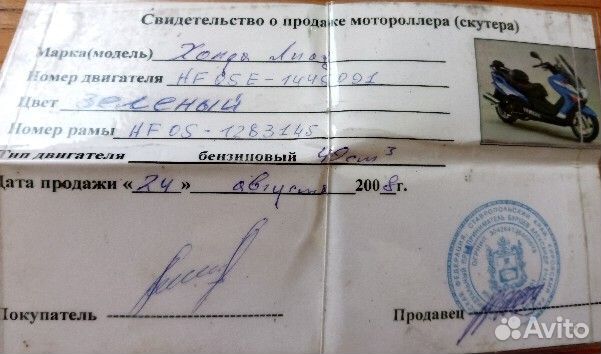 Свидетельство о продаже мотороллера (скутера)
Марка(модель) Хонда Лид
Номер двигателя HF05E-1445091
Цвет зеленый
Номер рамы HF05-1283145
Тип двигателя бензиновый 49cm³
Дата продажи «24» августа 2008г.
Покупатель
Продавец
Avito